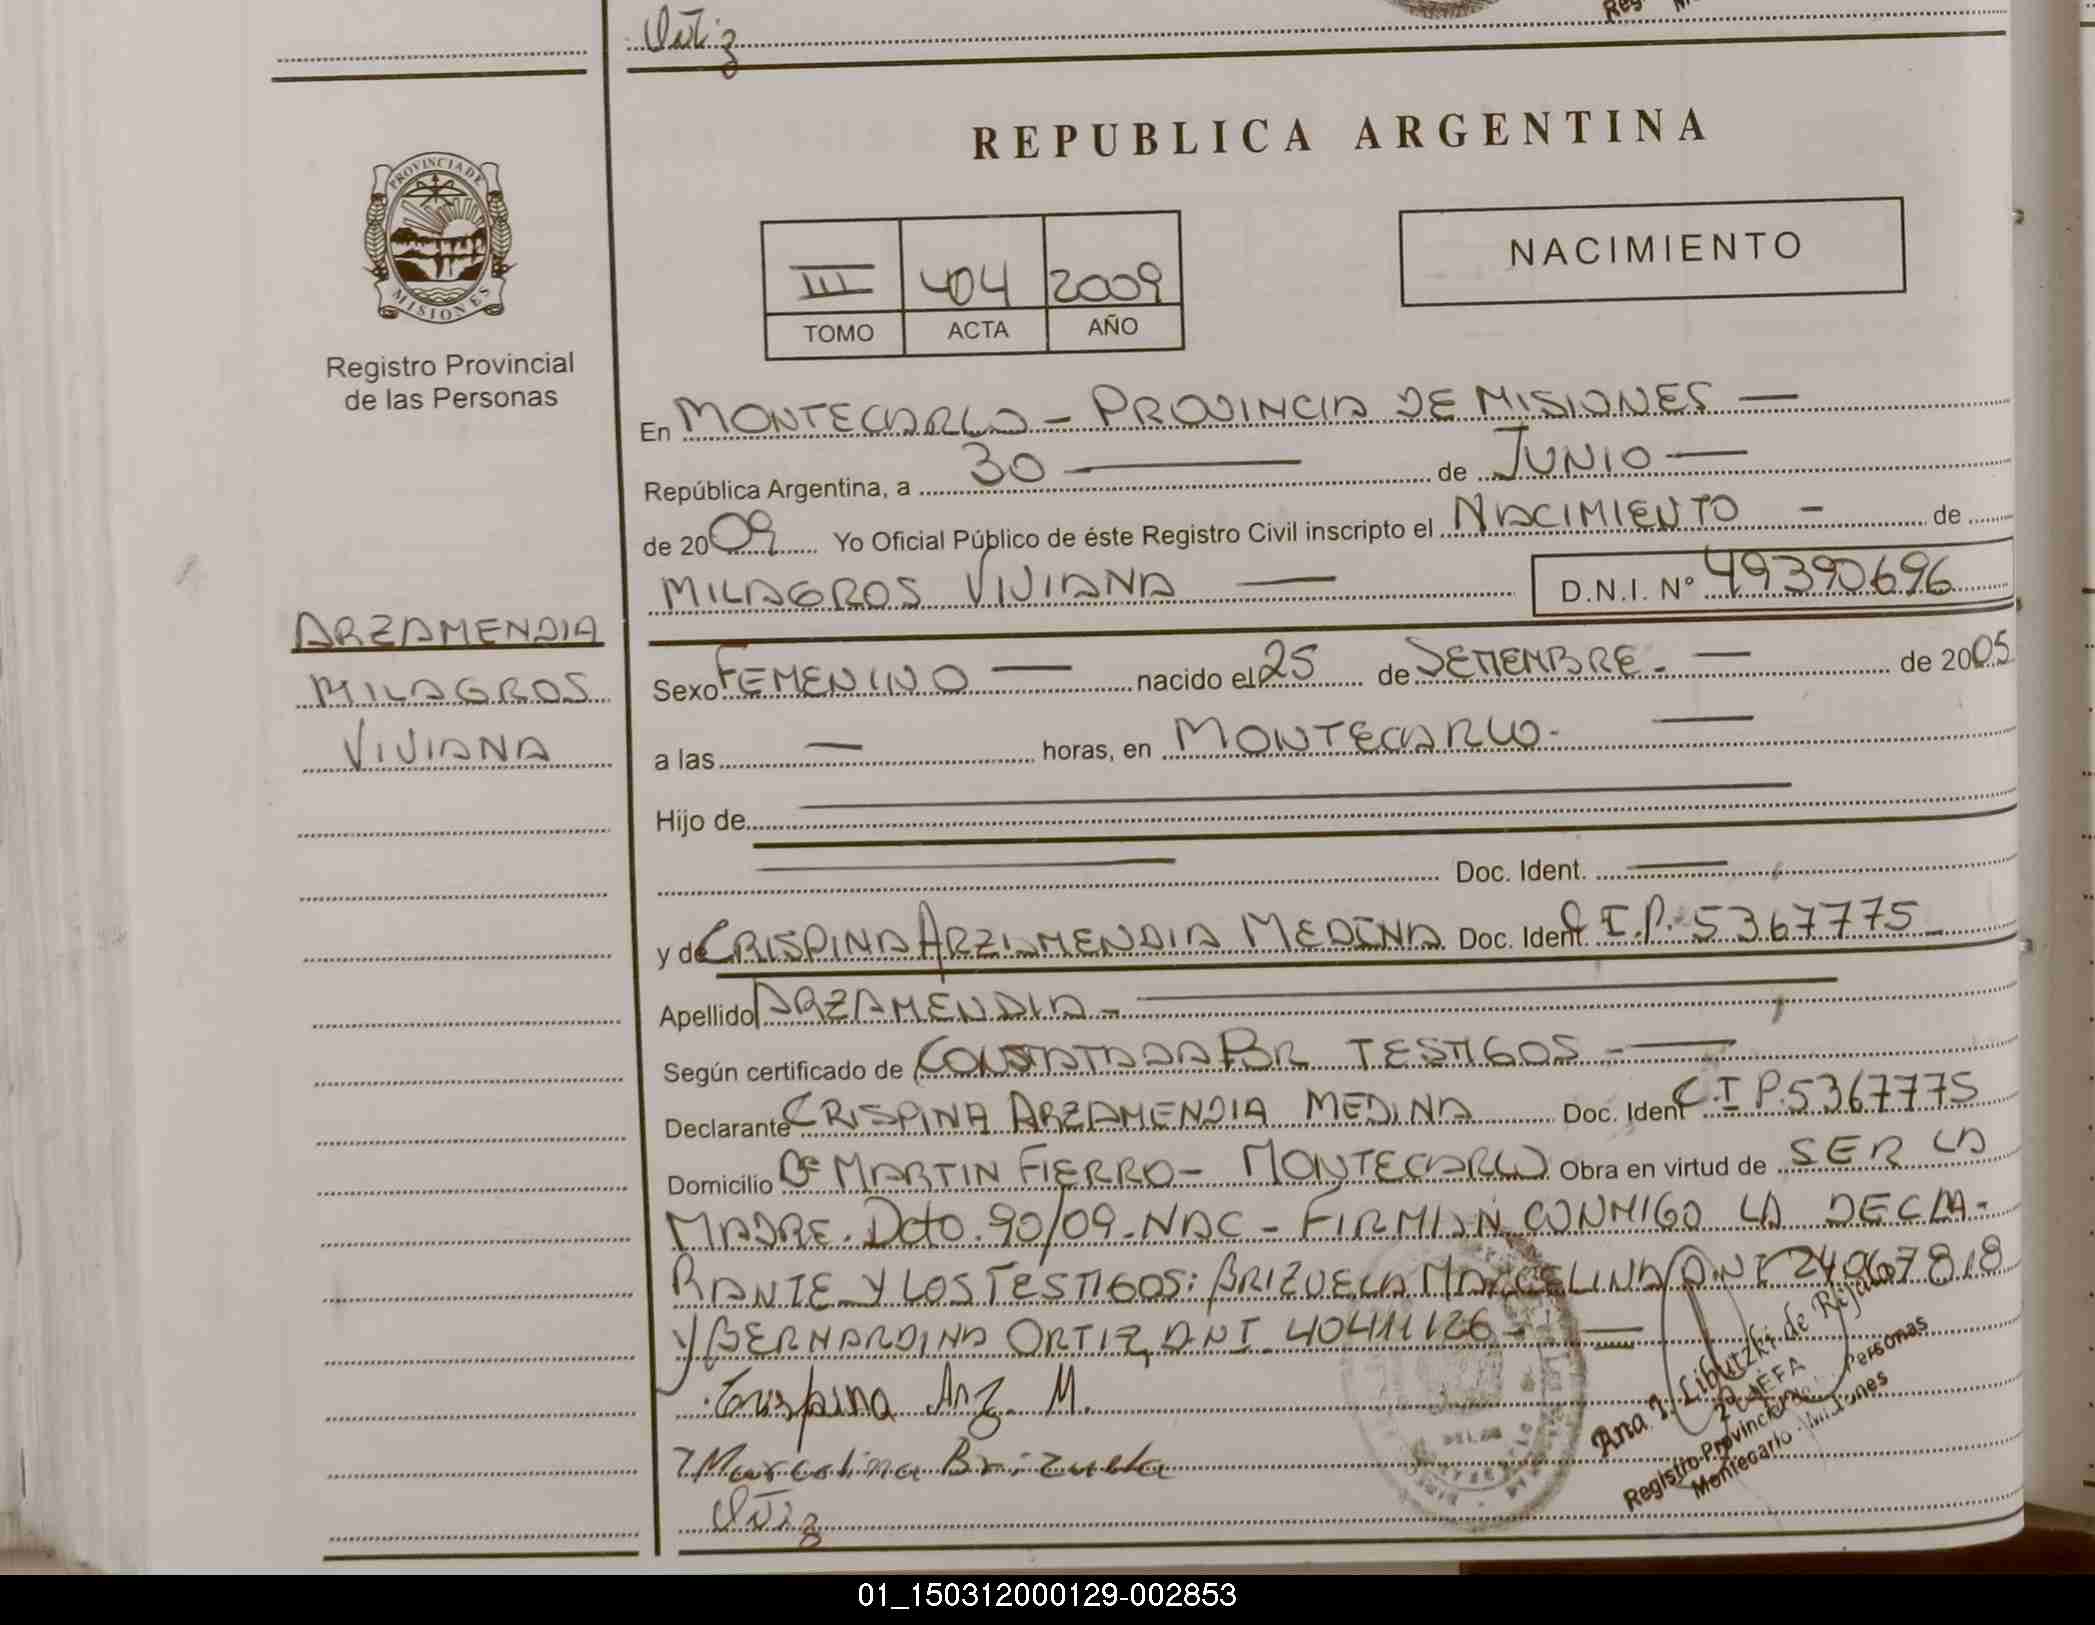 Ortiz
REPUBLICA ARGENTINA
PROVINCIA DE
MISIONES
Registro Provincial
de las Personas
NACIMIENTO
III 404 2009
TOMO ACTA AÑO
En MONTECARLO - PROVINCIA DE MISIONES —
República Argentina, a 30 — de JUNIO —
de 2009 Yo Oficial Público de éste Registro Civil inscripto el NACIMIENTO - de
MILAGROS VIVIANA — D.N.I. Nº 49390696
ARZAMENDIA
MILAGROS
VIVIANA
Sexo FEMENINO — nacido el 25 de SETIEMBRE - — de 2005
a las — horas, en MONTECARLO - —
Hijo de —
— Doc. Ident. —
y de CRISPINA ARZAMENDIA MEDINA Doc. Ident. C.I.P. 5367775 -
Apellido ARZAMENDIA - —
Según certificado de CONSTATADA POR TESTIGOS - —
Declarante CRISPINA ARZAMENDIA MEDINA Doc. Ident C.I P. 5367775
Domicilio Bº MARTIN FIERRO - MONTECARLO Obra en virtud de SER LA
MADRE. Dcto. 90/09 - NAC - FIRMAN CONMIGO LA DECLA-
RANTE Y LOS TESTIGOS: BRIZUELA MARCELINA D.N.I 24067818
Y BERNARDINA ORTIZ, D.N.I. 40411126 - —
Crispina Arz. M.
Marcelina Brizuela
Ortiz
Ana I. Libutzki de
JEFA
Registro Provincial Personas
Montecarlo - Misiones
01_150312000129-002853